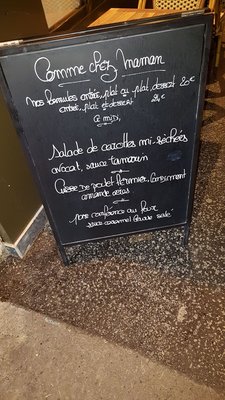 Comme chez Maman
Nos formules entrée, plat ou plat, dessert 20€
entrée, plat et dessert 24€
à midi,
Salade de carottes mi-séchées
avocat, sauce tamarin
Cuisse de poulet fermier,
amande
poire conférence au four
sauce caramel beurre salé